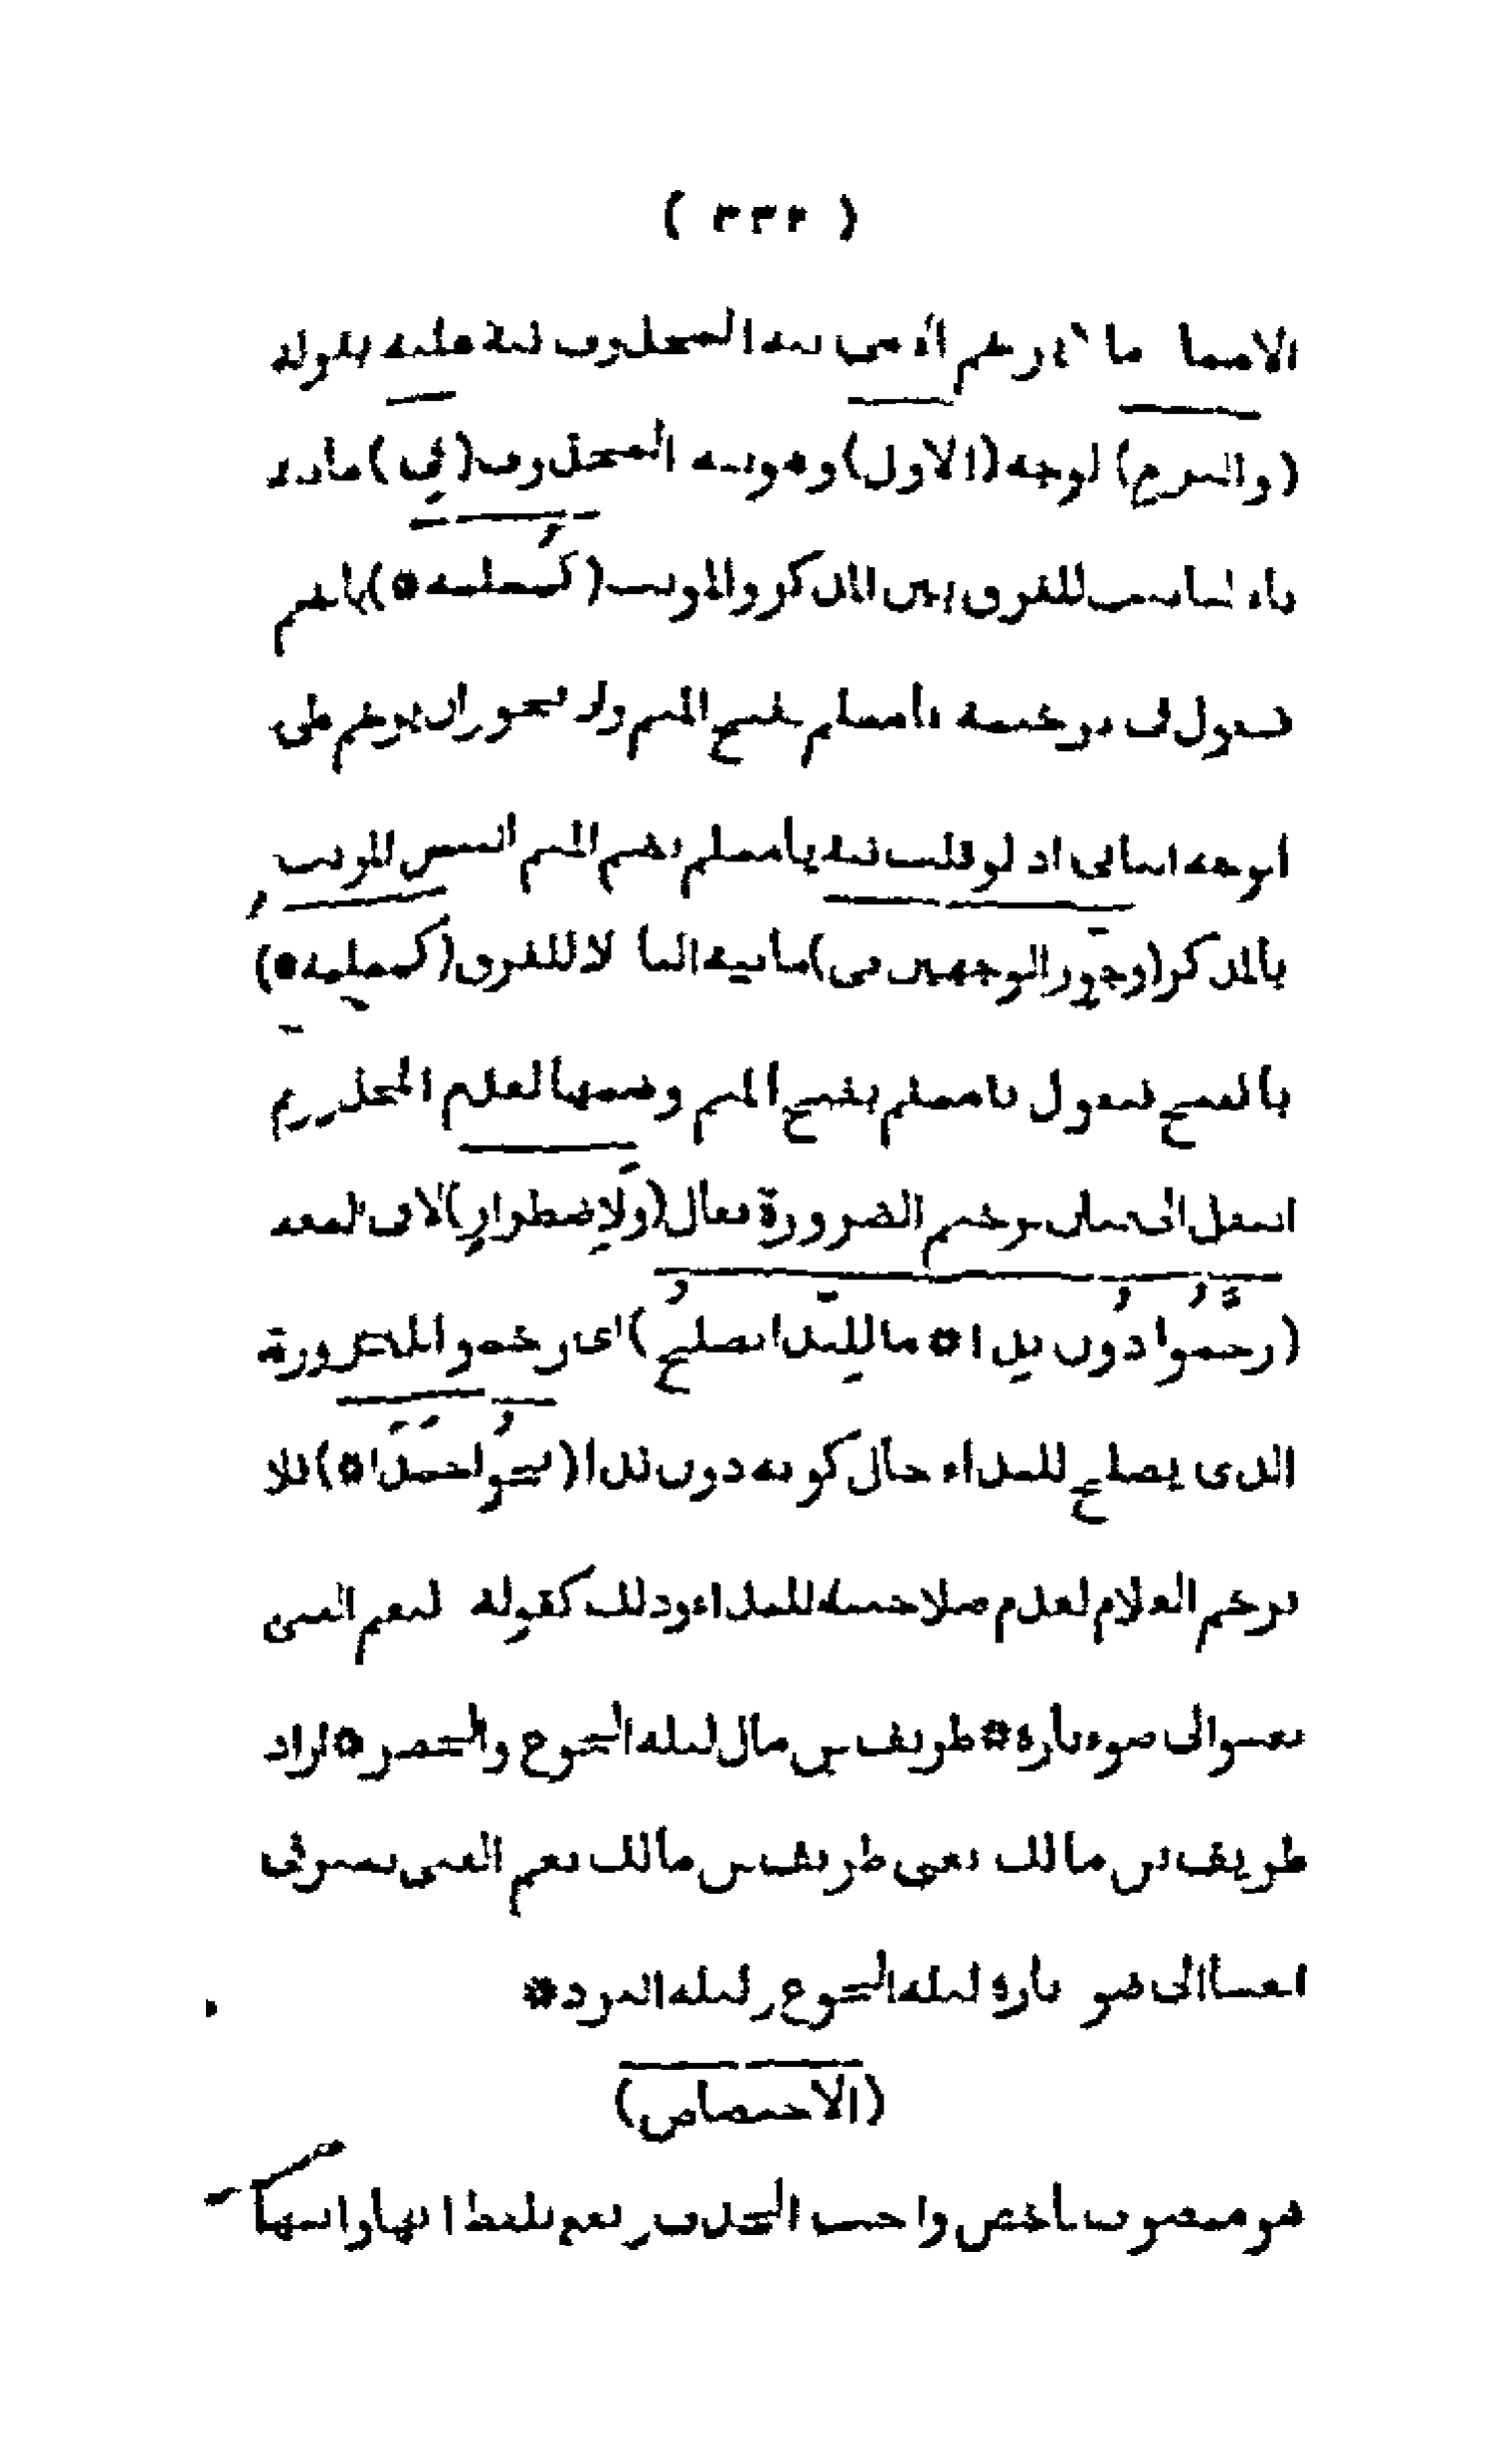 ( ٣٣٢ )
الاسما ما لا يرخم الا على نية المحذوف نبه عليه بقوله
(والتزم) الوجه (الاول) وهو نية المحذوف (في) ما فيه
تاء التانيث للفرق بين المذكر والمونث (كمسلمة *) بالضم
فتقول في ترخيمه يا مسلم بفتح الميم ولا يجوز ان يرخم على
الوجه الثاني اذ لو قلت فيه يا مسلم بضم الميم التبس المونث
بالمذكر (وجوز الوجهين في) ما فيه التا لا للفرق (كمسلمة *)
بالفتح فتقول يا مسلم بفتح الميم وضمها لعدم المحذور ثم
انتقل الى بيان ترخيم الضرورة فقال (ولاضطرار) الا في السعة
(رخموا دون ندا * ما للندا يصلح) اي رخموا للضرورة
الذي يصلح للنداء حال كونه دون ندا (نحو احمدا *) فلا
يرخم الغلام لعدم صلاحيته للنداء وذلك كقوله لنعم الفتى
تعشو الى ضوء ناره * طريف بن مال ليله الجوع والخصر * اراد
طريف بن مالك يعني طريف بن مالك نعم الفتى تصير في
العشا الى ضو ناره ليله الجوع وليله البرد *
(الاختصاص)
هو منصوب باخص واجب الحذف يقع بلفظ ايها وايتها